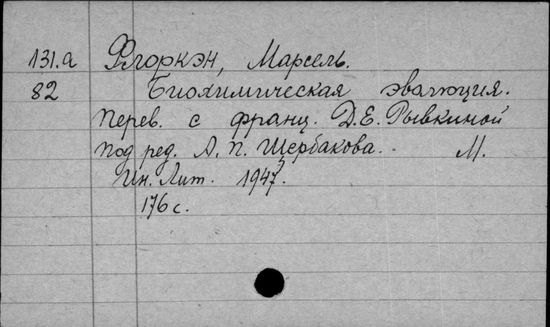 131.а Флоркэн, Марсель.
82 Биохимическая эволюция.
Перев. с франц. Д.Е. Рывкиной
под ред. А.П. Щербакова. М.
Ин. Лит. 1947.
176 с.